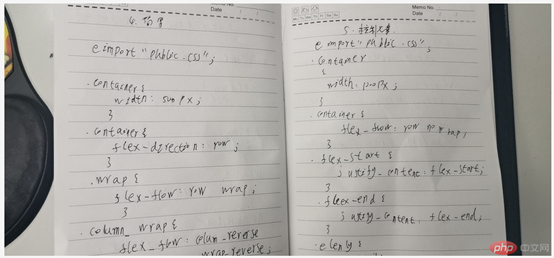 Date
e import "public.css";
.container{
width: 500px;
}
.container{
flex-direction: row;
}
.wrap {
flex-flow: row wrap;
}
.column_wrap{
flex_flow: colum_reverse
wrap_reverse;
Memo No.
Date
e import "public.css";
.container
{
width:
}
.container {
flex-flow: row nowrap;
}
.flex-start {
justify-content: flex-start;
}
.flex-end {
justify-content: flex-end;
}
php 中文网